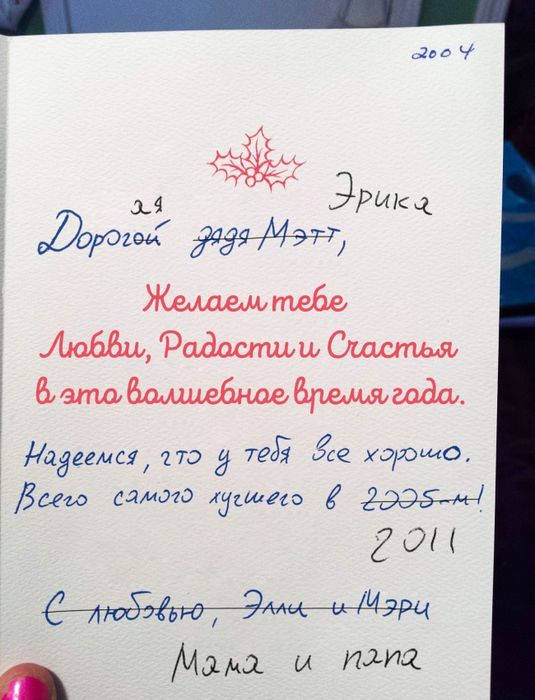 2004
ая Эрика
Дорогой дядя Мэтт,
Желаем тебе
Любви, Радости и Счастья
в это волшебное время года.
Надеемся, что у тебя все хорошо.
Всего самого лучшего в 2005-м!
2011
С любовью, Элли и Мэри
Мама и папа